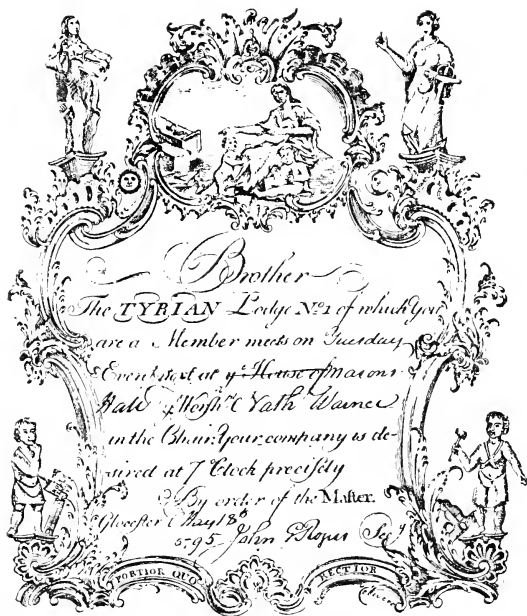 Brother
The TYRIAN Lodge No 1 of which You
are a Member meets on Tuesday
Evening next at ye House of Masons
Hall ye Worshl Nath Warner
in the Chair. Your company is de-
sired at 7 Clock precisely
By order of the Master.
Glocester May 18
5795 John Rogers Secy
FORTIOR QUO RECTIOR